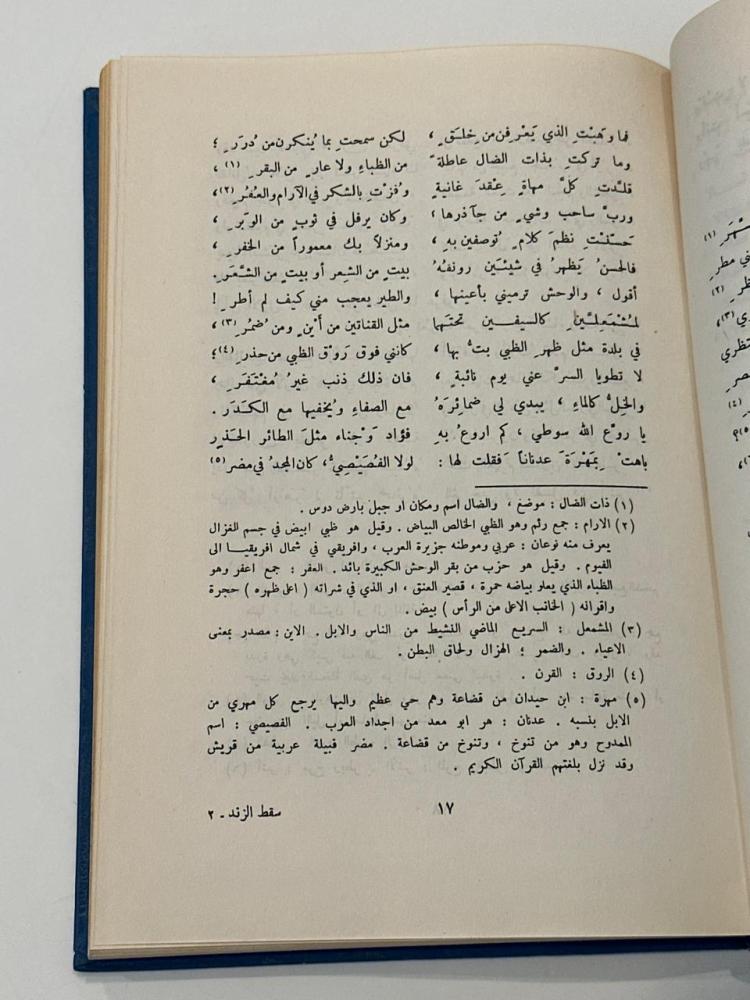 فما وهبْتِ الذي يَعْرِفن من خلَقٍ ، لكن سمحتِ بما يُنكرن من دُررٍ ؛
وما تركتِ بذات الضال عاطلةً من الظباءِ ولا عارٍ من البقرِ (١) ،
قلدتِ كلَّ مهاةٍ عِقدَ غانيةٍ وفُزتِ بالشكر في الآرام والعُفُرِ (٢) ،
وربّ ساحب وشيٍ من جآذرها ، وكان يرفل في ثوبٍ من الوبرِ ،
حَسّنْتِ نظمَ كلامٍ تُوصفين بهِ ، ومنزلاً بك معموراً من الخفرِ ،
فالحسنُ يَظهرُ في شيئَين رونقُهُ بيتٍ من الشِعر أو بيتٍ من الشَّعَرِ .
أقول ، والوحش ترميني بأعينها ، والطير يعجب مني كيف لم أطرِ !
لمُشْمَعِلَّيْنِ كالسيفين تحتَهما مثل القناتين من أيْنٍ ومن ضُمُرِ (٣) ،
في بلدة مثل ظهرِ الظبي بتُّ بها ، كأنني فوق رَوْقِ الظبي من حذرِ (٤) ؛
لا تطويا السرَّ عني يوم نائبةٍ ، فان ذلك ذنب غيرُ مُغْتَفَرِ ،
والخِلُّ كالماءِ ، يبدي لي ضمائرَهُ مع الصفاءِ ويُخفيها مع الكَدَرِ .
يا روّع الله سوطي ، كم اروعُ بهِ فؤاد وَجْناء مثلَ الطائر الحَذِرِ
باهتْ بِمَهْرَةَ عدناناً فقلت لها : لولا الفُصَيْصِيُّ ، كان المجدُ في مضرِ (٥)
(١) ذات الضال : موضع ، والضال اسم ومكان او جبل بارض دوس .
(٢) الارام : جمع رئم وهو الظبي الخالص البياض . وقيل هو ظبي ابيض في جسم الغزال
يعرف منه نوعان : عربي وموطنه جزيرة العرب ، وافريقي في شمال افريقيا الى
الفيوم . وقيل هو حزب من بقر الوحش الكبيرة بائد . العفر : جمع اعفر وهو
الظباء الذي يعلو بياضه حمرة ، قصير العنق ، او الذي في شراته ( اعلى ظهره ) حجرة
واقرانه ( الخانب الاعلى من الرأس ) بيض .
(٣) المشمعل : السريع الماضي النشيط من الناس والابل . الاين : مصدر بمعنى
الاعياء . والضمر ؛ الهزال ولحاق البطن .
(٤) الروق : القرن .
(٥) مهرة : ابن حيدان من قضاعة وهم حي عظيم واليها يرجع كل مهري من
الابل بنسبه . عدنان : هو ابو معد من اجداد العرب . الفصيصي : اسم
الممدوح وهو من تنوخ ، وتنوخ من قضاعة . مضر قبيلة عربية من قريش
وقد نزل بلغتهم القرآن الكريم .
١٧
سقط الزند - ٢